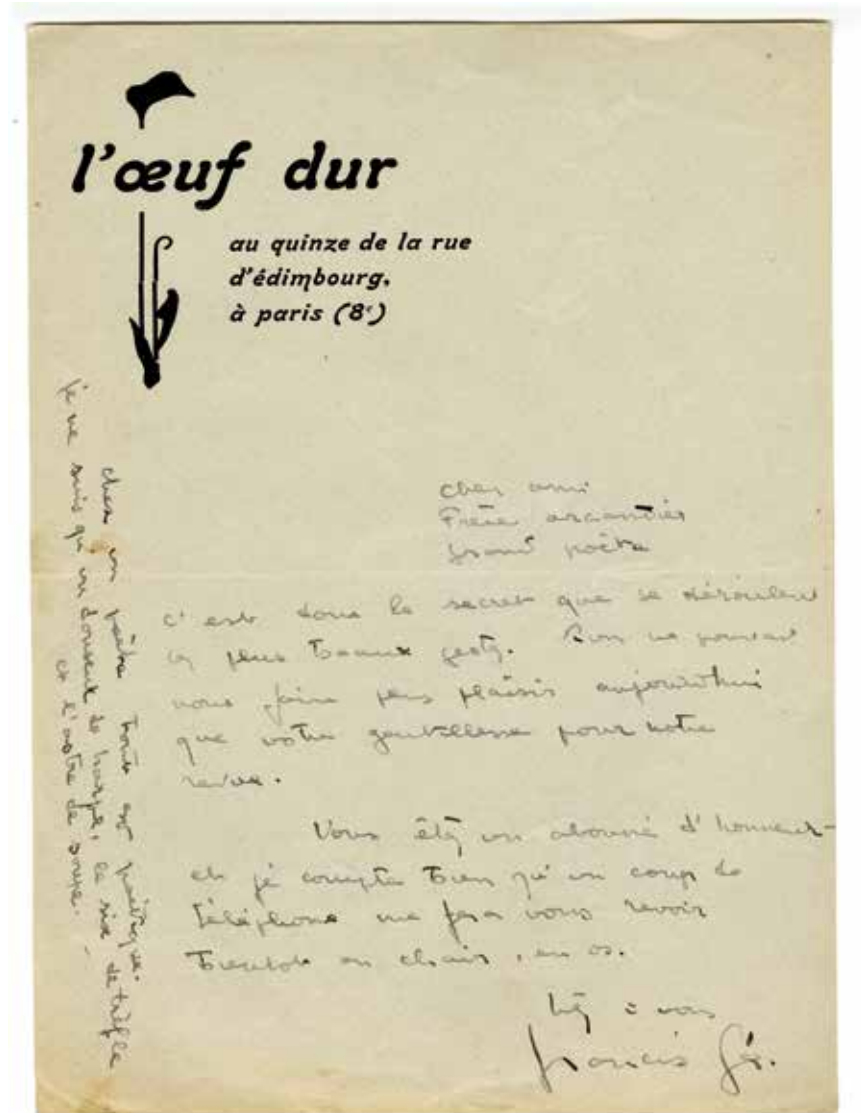 l'œuf dur
au quinze de la rue
d'édimbourg,
à paris (8ᵉ)
cher ami
Frère
grand poète
c'est dans le secret que se déroulent
les plus beaux gestes. Rien ne pouvait
nous faire plus plaisir aujourd'hui
que votre gentillesse pour notre
revue.
Vous êtes un abonné d'honneur
et je compte bien qu'un coup de
téléphone me fera vous revoir
bientôt en chair, en os.
très à vous
Francis
chez un poète tout est poétique.
je ne suis qu'un de harpe, le six de trèfle
et l'astre de soupe. -